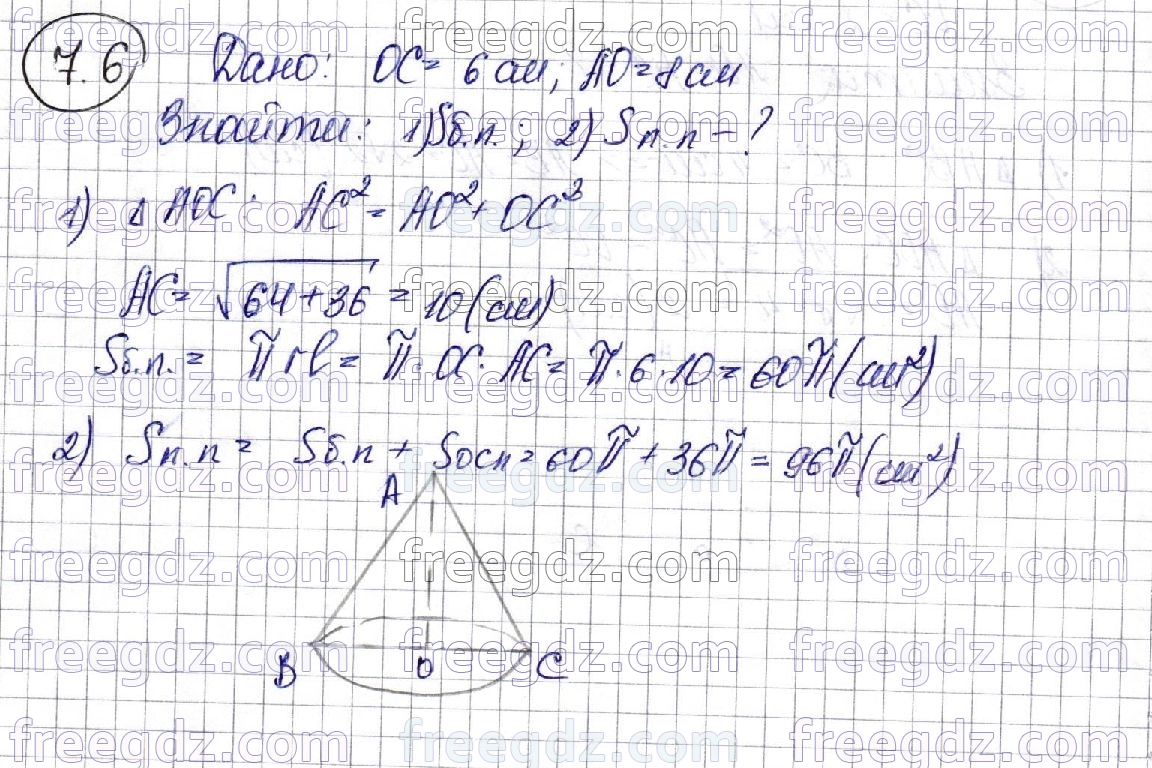 7.6 Дано: OC = 6 см; AO = 8 см
Знайти: 1) Sб.п.; 2) Sп.п - ?
1) Δ AOC: AC² = AO² + OC²
AC = √64+36 = 10 (см)
Sб.п. = πrl = π · OC · AC = π · 6 · 10 = 60π (см²)
2) Sп.п = Sб.п + Sосн = 60π + 36π = 96π (см²)
A
B O C
freegdz.com